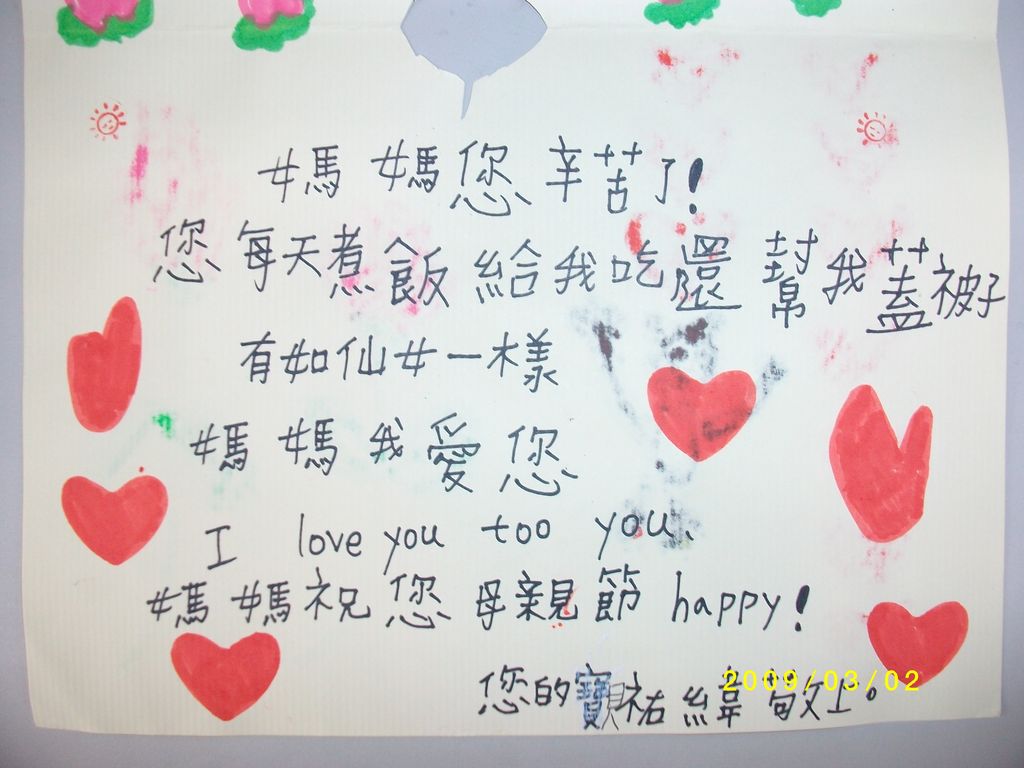 媽媽您辛苦了!
您每天煮飯給我吃還幫我蓋被子
有如仙女一樣
媽媽我愛您
I love you too you.
媽媽祝您母親節 happy!
您的寶貝祐緯敬上。
2009/03/02